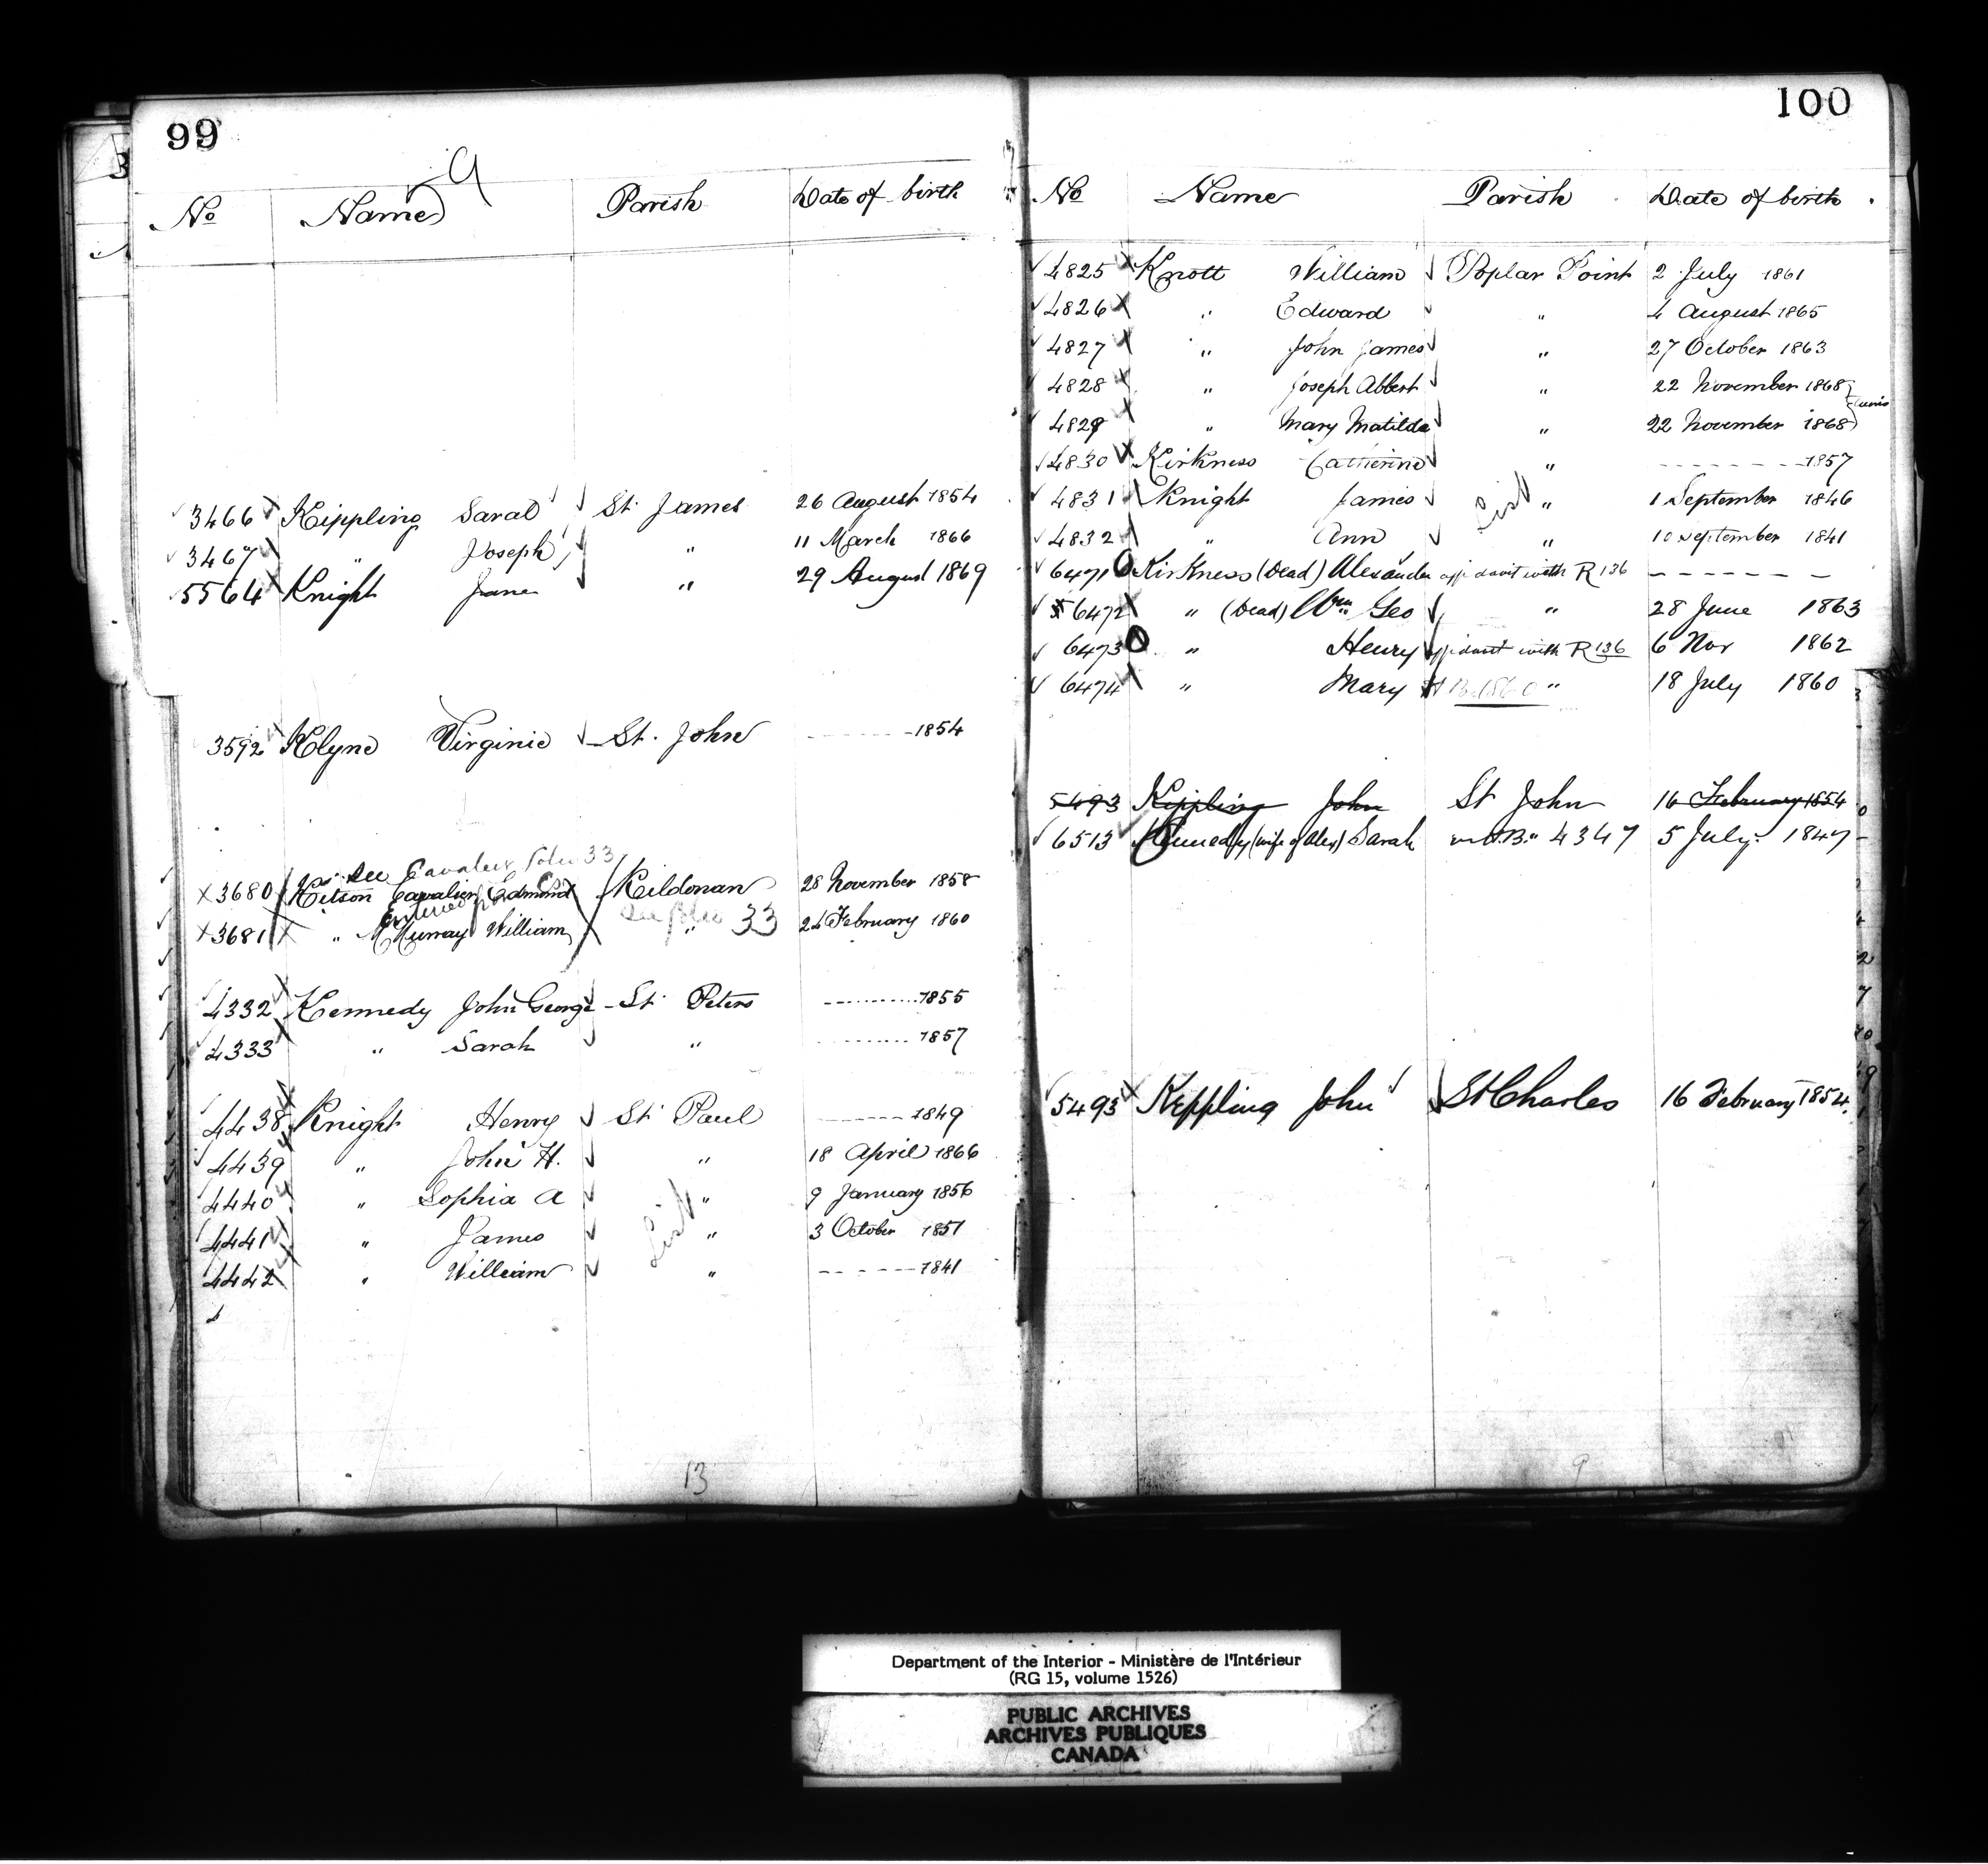 99
9
No Name Parish Date of birth
3466 Kippling Sarah St. James 26 August 1854
3467 " Joseph " 11 March 1866
5564 Knight Jane " 29 August 1869
3592 Klyne Virginie St. John 1854
see Cavalier Folio 33
3680 Kitson Cavalier Edmond Kildonan 28 November 1858
see folio 33
3681 " McMurray William " 24 February 1860
4332 Kennedy John George St. Peters 1855
4333 " Sarah " 1857
4438 Knight Henry St. Paul 1849
4439 " John H. " 18 April 1866
4440 " Sophia A " 9 January 1856
4441 " James " 3 October 1851
4442 " William " 1841
List
13
100
No Name Parish Date of birth
4825 Knott William Poplar Point 2 July 1861
4826 " Edward " 4 August 1865
4827 " John James " 27 October 1863
4828 " Joseph Albert " 22 November 1868
4829 " Mary Matilda " 22 November 1868
4830 Kirkness Catherine " 1857
4831 Knight James List " 1 September 1846
4832 " Ann " 10 September 1841
6471 Kirkness (Dead) Alexander affidavit with R 136
6472 " (Dead) Wm Geo " 28 June 1863
6473 " Henry affidavit with R 136 6 Nov 1862
6474 " Mary " 18 July 1860
5493 Kippling John St John 16 February 1854
6513 Kennedy (wife of Alex) Sarah 4347 5 July 1847
5493 Keppling John St Charles 16 February 1854.
9
Department of the Interior - Ministère de l'Intérieur
(RG 15, volume 1526)
PUBLIC ARCHIVES
ARCHIVES PUBLIQUES
CANADA